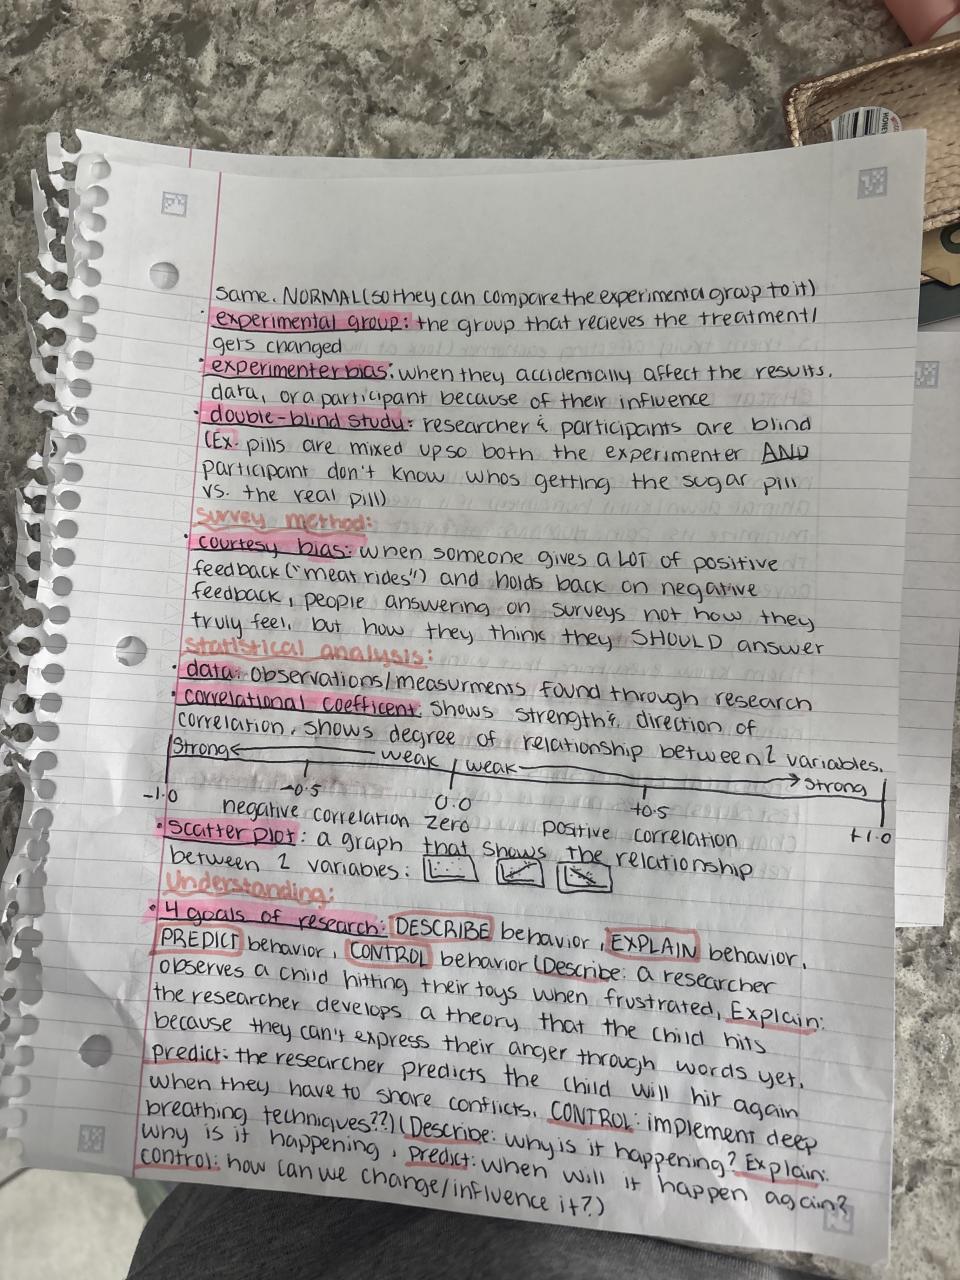 same. NORMAL (so they can compare the experimental group to it)
• experimental group: the group that recieves the treatment/
gets changed
• experimenter bias: when they accidentally affect the results,
data, or a participant because of their influence
• double-blind study: researcher & participants are blind
(Ex. pills are mixed up so both the experimenter AND
participant don't know whos getting the sugar pill
vs. the real pill)
Survey method:
• courtesy bias: when someone gives a LOT of positive
feedback ("meat rides") and holds back on negative
feedback, people answering on surveys not how they
truly feel, but how they think they SHOULD answer
Statistical analysis:
• data: observations/measurments found through research
• correlational coefficent: shows strength & direction of
correlation, shows degree of relationship between 2 variables.
Strong weak weak strong
-1.0 -0.5 0.0 +0.5 +1.0
negative correlation zero positive correlation
• scatter plot: a graph that shows the relationship
between 2 variables:
Understanding:
• 4 goals of research: DESCRIBE behavior, EXPLAIN behavior,
PREDICT behavior, CONTROL behavior (Describe: a researcher
observes a child hitting their toys when frustrated, Explain:
the researcher develops a theory that the child hits
because they can't express their anger through words yet,
predict: the researcher predicts the child will hit again
when they have to share conflicts. CONTROL: implement deep
breathing techniques??) (Describe: why is it happening? Explain:
why is it happening, predict: when will it happen again?
control: how can we change/influence it?)
HONE